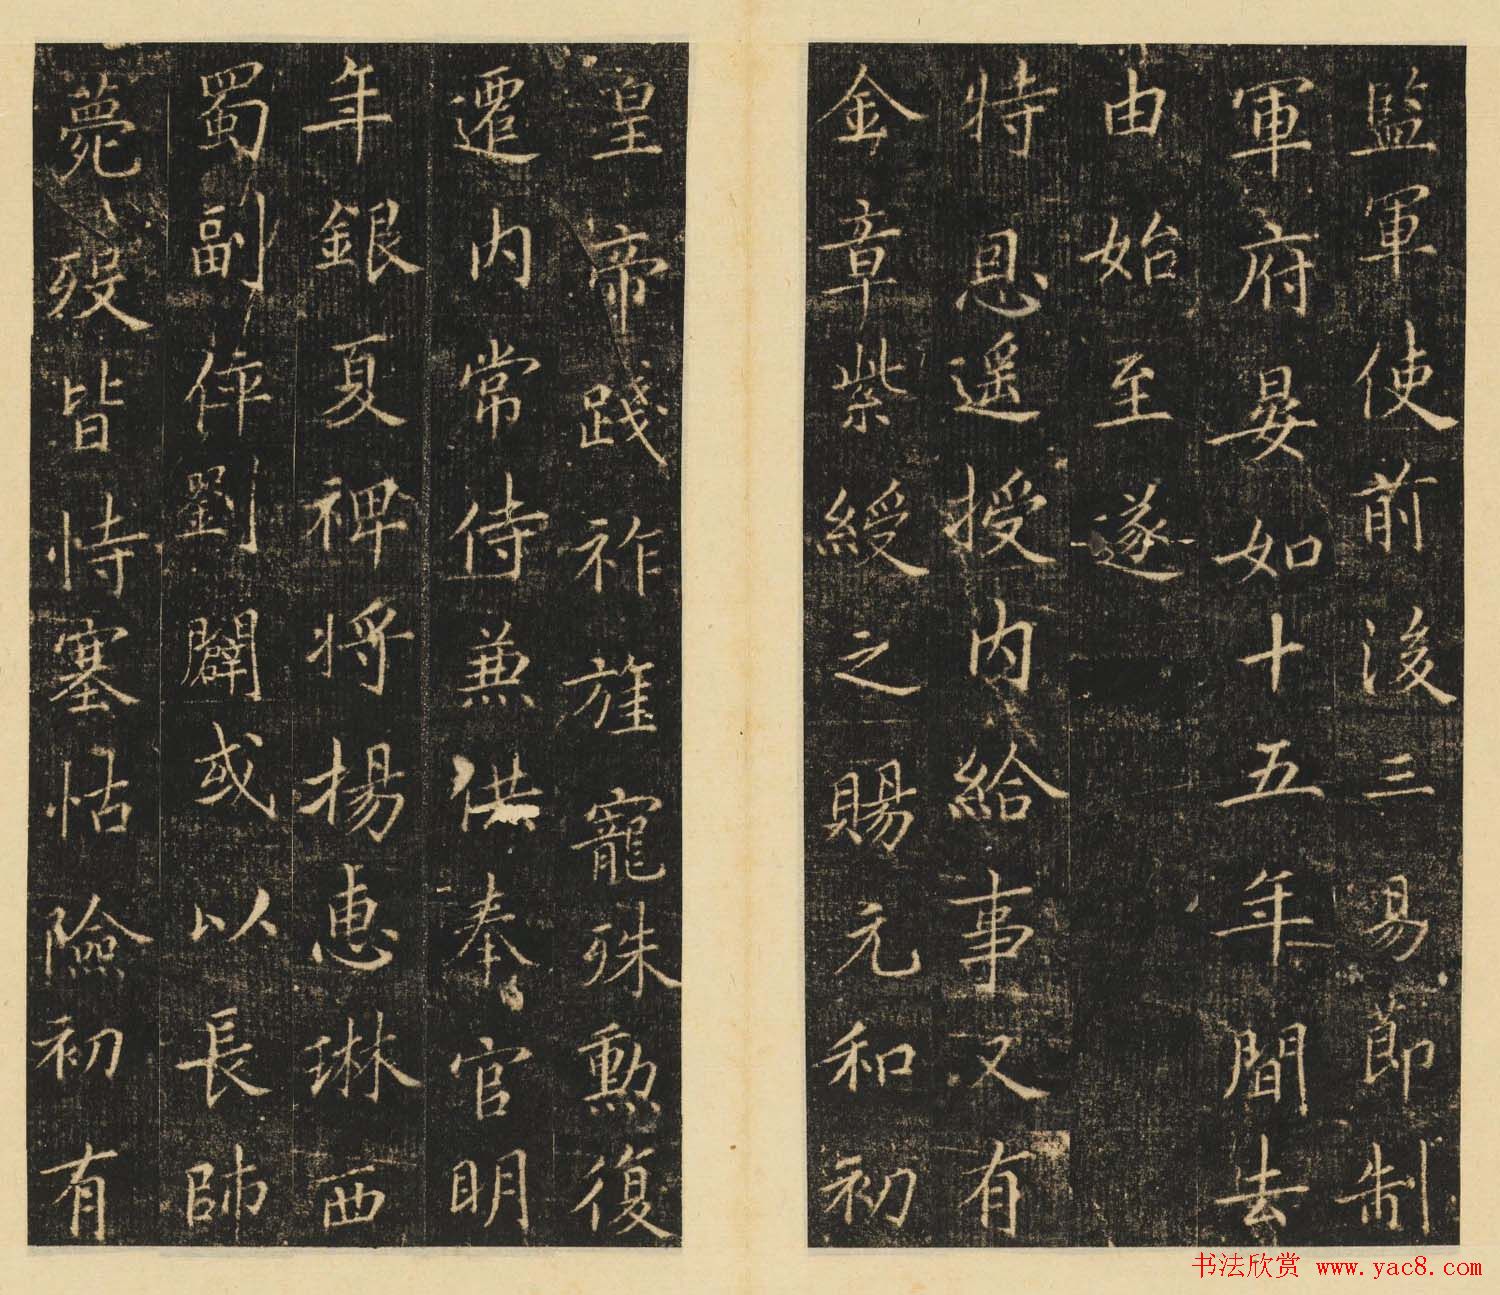 監軍使前後三易節制
軍府晏如十五年間去
由始至遂
特恩遥授内給事又有
金章紫綬之賜元和初
皇帝踐祚旌寵殊勲復
遷内常侍兼供奉官明
年銀夏裨將楊惠琳西
蜀副倅劉闢或以長師
薨歿皆恃塞怙險初有
书法欣赏 www.yac8.com